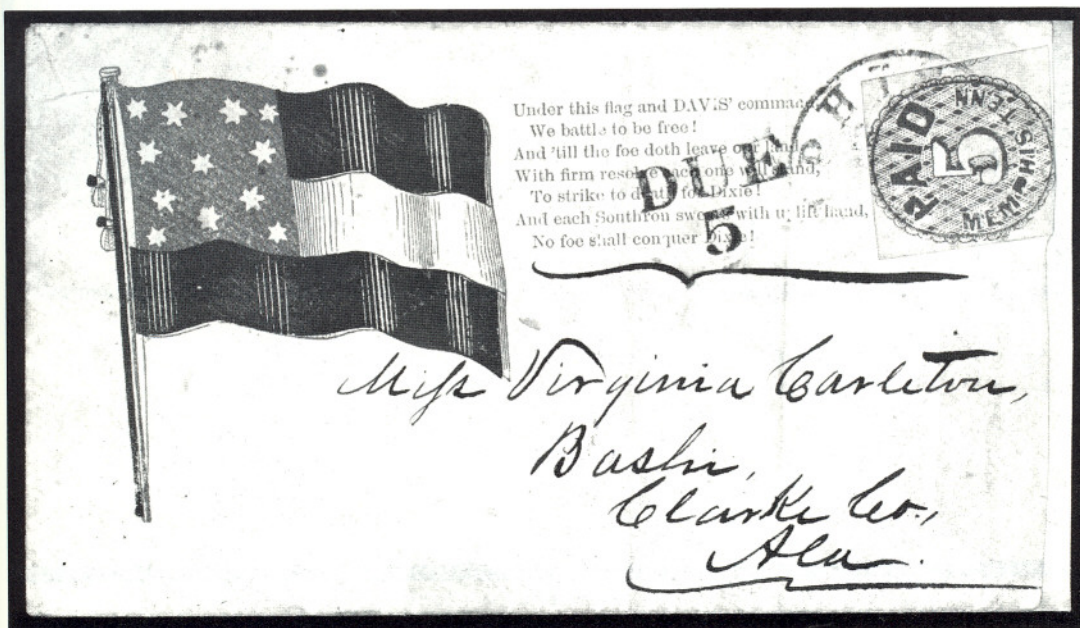 Under this flag and DAVIS' command
We battle to be free!
And 'till the foe doth leave our land,
With firm resolve each one will stand,
To strike to death for Dixie!
And each Southron swears with uplift hand,
No foe shall conquer Dixie!
DUE
5
PAID
5
MEMPHIS TENN
Miss Virginia Carleton,
Bashi,
Clarke Co.,
Ala.